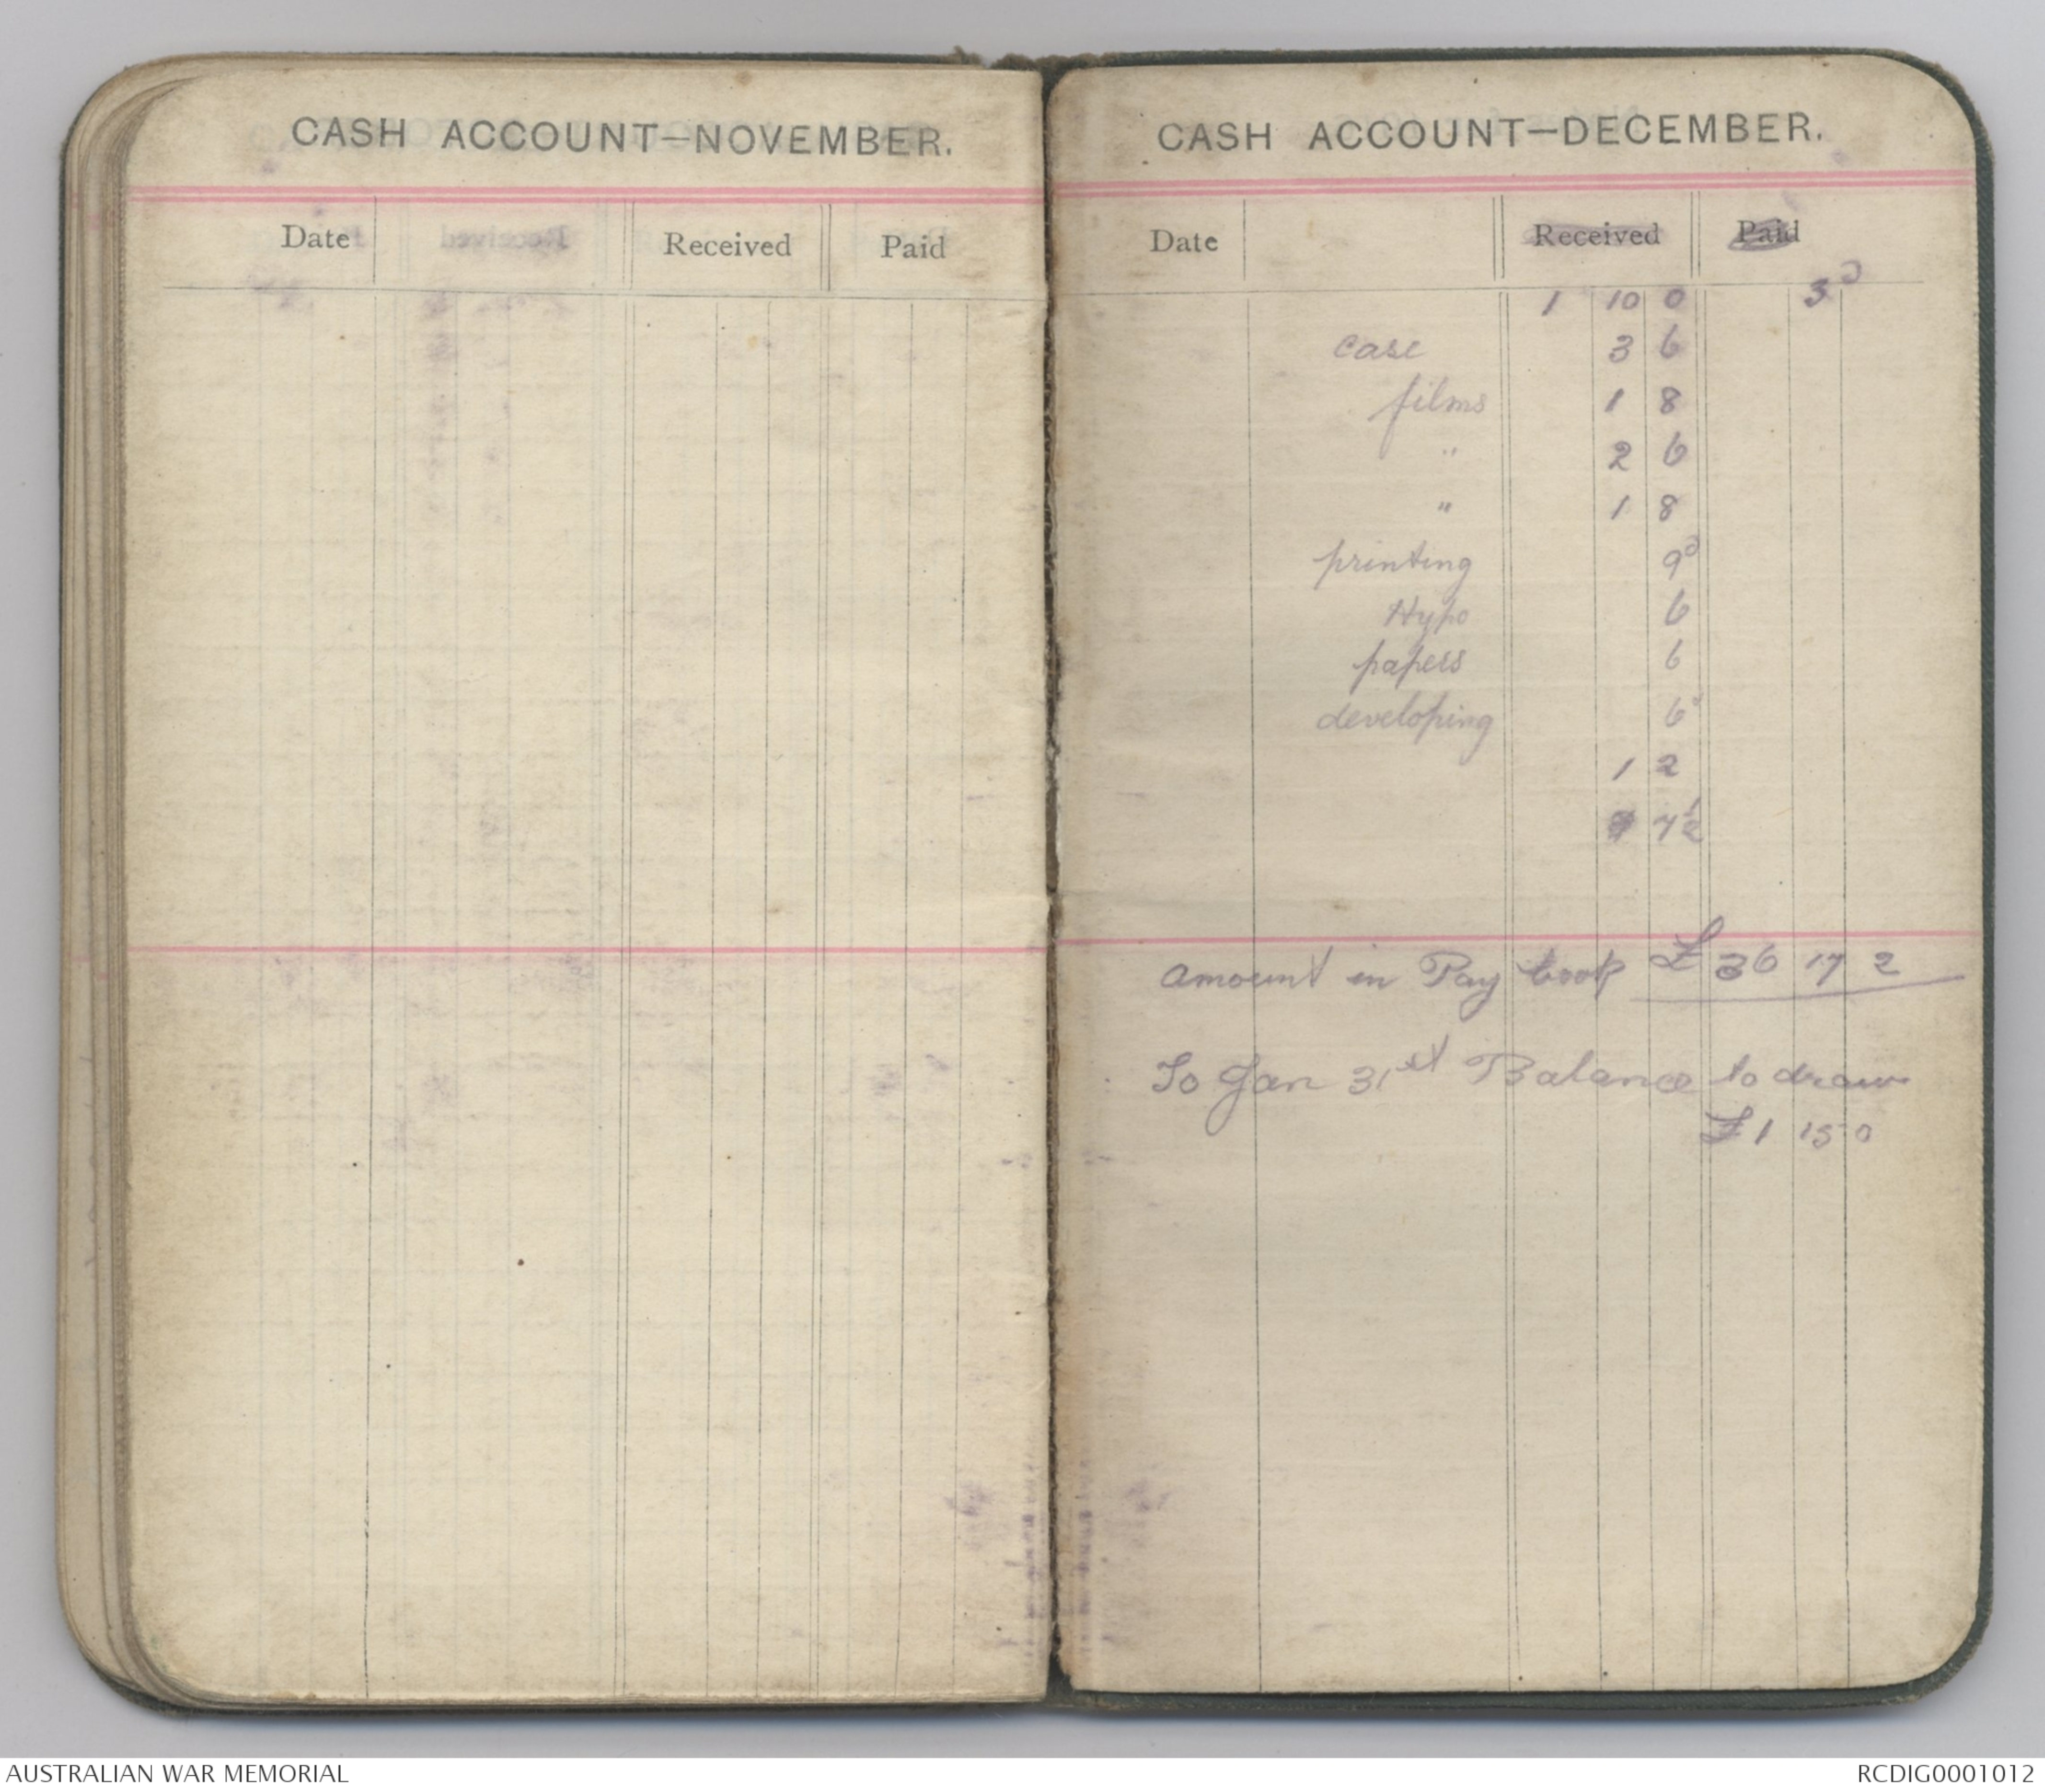 CASH ACCOUNT—NOVEMBER.
Date Received Paid
CASH ACCOUNT—DECEMBER.
Date Received Paid
1 10 0 3d
case 3 6
films 1 8
" 2 6
" 1 8
printing 9d
Hypo 6
papers 6
developing 6
1 2
7½
Amount in Pay book £36 17 2
To Jan 31st Balance to draw
£1 15 0
AUSTRALIAN WAR MEMORIAL
RCDIG0001012